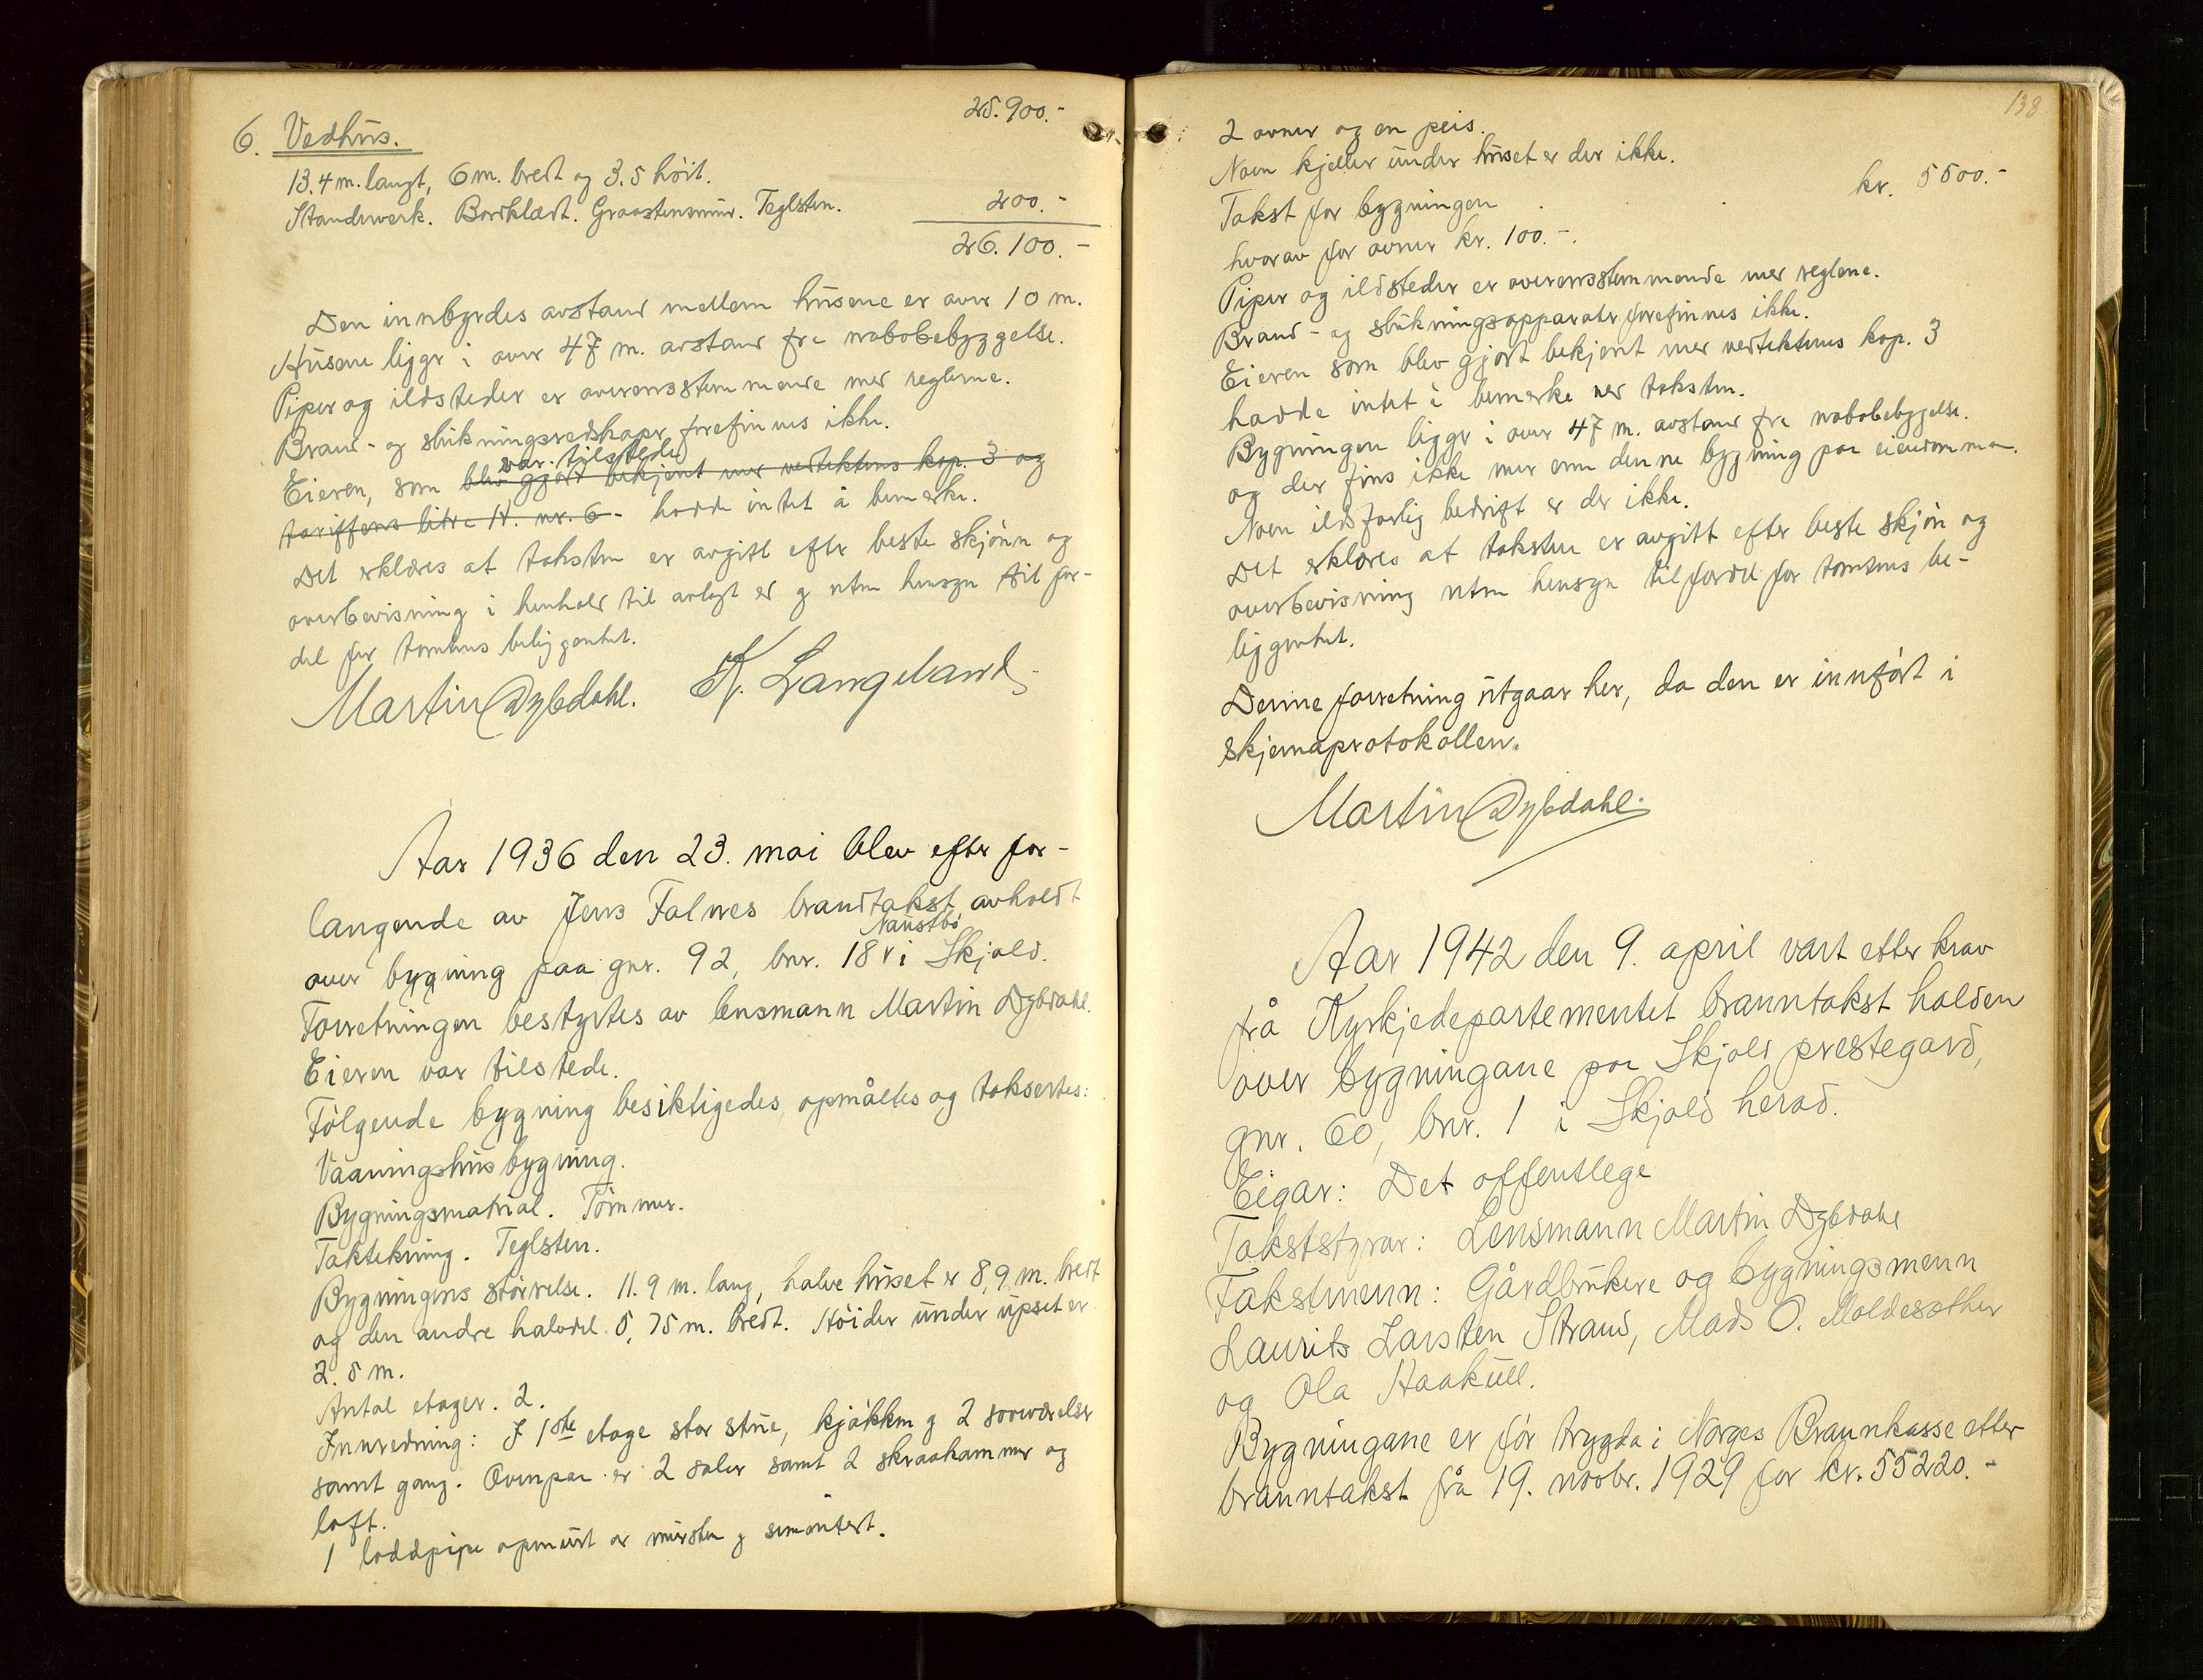 25.900.-
6. Vedhus.
13.4 m. langt, 6 m. bredt og 3.5 höit.
Standerverk. Bordklædt. Graastensmur. Teglsten. 200.-
26.100.-
Den innbyrdes avstand mellem husene er over 10 m.
Husene ligger i over 47 m. avstand fra nabobebyggelse.
Piper og ildsteder er overensstemmende med reglerne.
Brand- og slukningsredskaper forefinnes ikke.
var tilstede
Eieren, som blev gjort bekjent med vedtektens kap. 3 og
tariffens litra H. nr. 6 - hadde intet å bemerke.
Det erklæres at taksten er avgitt efter beste skjönn og
overbevisning i henhold til avlagt ed og uten hensyn til for-
del for tomtens beliggenhet.
Martin Dybdahl. K. Langeland
Aar 1936 den 23. mai blev efter for-
langende av Jens Falnes brandtakst avholdt
Naustbö
over bygning paa gnr. 92, bnr. 18 v i Skjold.
Forretningen bestyrtes av lensmann Martin Dybdahl.
Eieren var tilstede.
Fölgende bygning besiktigedes, opmåltes og taksertes:
Vaaningshusbygning.
Bygningsmatrial. Tömmer.
Taktekning. Teglsten.
Bygningens störrelse. 11.9 m. lang, halve huset er 8,9 m. bredt
og den andre halvdel 5,75 m. bredt. Höider under upset er
2.8 m.
Antal etager. 2.
Innredning: I 1ste etage stor stue, kjökken og 2 soveværelser
samt gang. Ovenpaa er 2 saler samt 2 skraakammer og
loft.
1 loddpipe opmurt av mursten og sementert.
138
2 ovner og en peis.
Noen kjeller under huset er der ikke.
Takst for bygningen kr. 5500.-
hvorav for ovner kr. 100.-.
Piper og ildsteder er overensstemmende med reglene.
Brand- og slukningsapparater forefinnes ikke.
Eieren som blev gjort bekjent med vedtektenes kap. 3
hadde intet i bemerke ved taksten.
Bygningen ligger i over 47 m. avstand fra nabobebyggelse.
og der fins ikke mer enn denne bygning paa eiendommen.
Noen ildsfarlig bedrift er der ikke.
Det erklæres at taksten er avgitt efter beste skjön og
overbevisning uten hensyn til fordel for tomtens be-
liggenhet.
Denne forretning utgaar her, da den er innfört i
skjemaprotokollen.
Martin Dybdahl.
Aar 1942 den 9. april vart etter krav
frå Kyrkjedepartementet branntakst halden
over bygningane paa Skjold prestegard,
gnr. 60, bnr. 1 i Skjold herad.
Eigar: Det offentlege
Takststyrar: Lensmann Martin Dybdahl
Takstmenn: Gårdbrukere og bygningsmenn
Laurits Larsten Strand, Mads O. Moldesæther
og Ola Haakull.
Bygningane er för trygda i Norges Brannkasse etter
branntakst frå 19. novbr. 1929 for kr. 55220.-